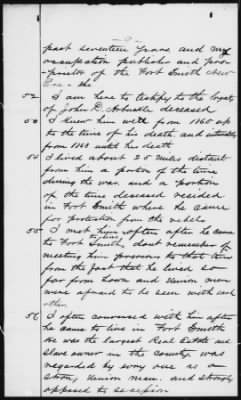 past seventeen years and my
occupation publisher and pro-
prietor of the Fort Smith New
Era - the
52 I am here to testify to the loyalty
of John D. Arbuckle deceased
53 I knew him well from 1865 up
to the time of his death and intimately
from 1863 until his death
54 I lived about 25 miles distant
from him a portion of the time
during the war. and a portion
of the time deceased resided
in Fort Smith where he came
for protection from the rebels
55 I met him often after he came
to Fort Smith, dont remember of
meeting him previous to that time
from the fact that he lived so
far from town and Union men
were afraid to be seen with each
other
56 I often conversed with him after
he came to live in Fort Smith
He was the largest Real Estate and
slave owner in the County. was
regarded by every one as a
strong Union man. and strongly
opposed to secession